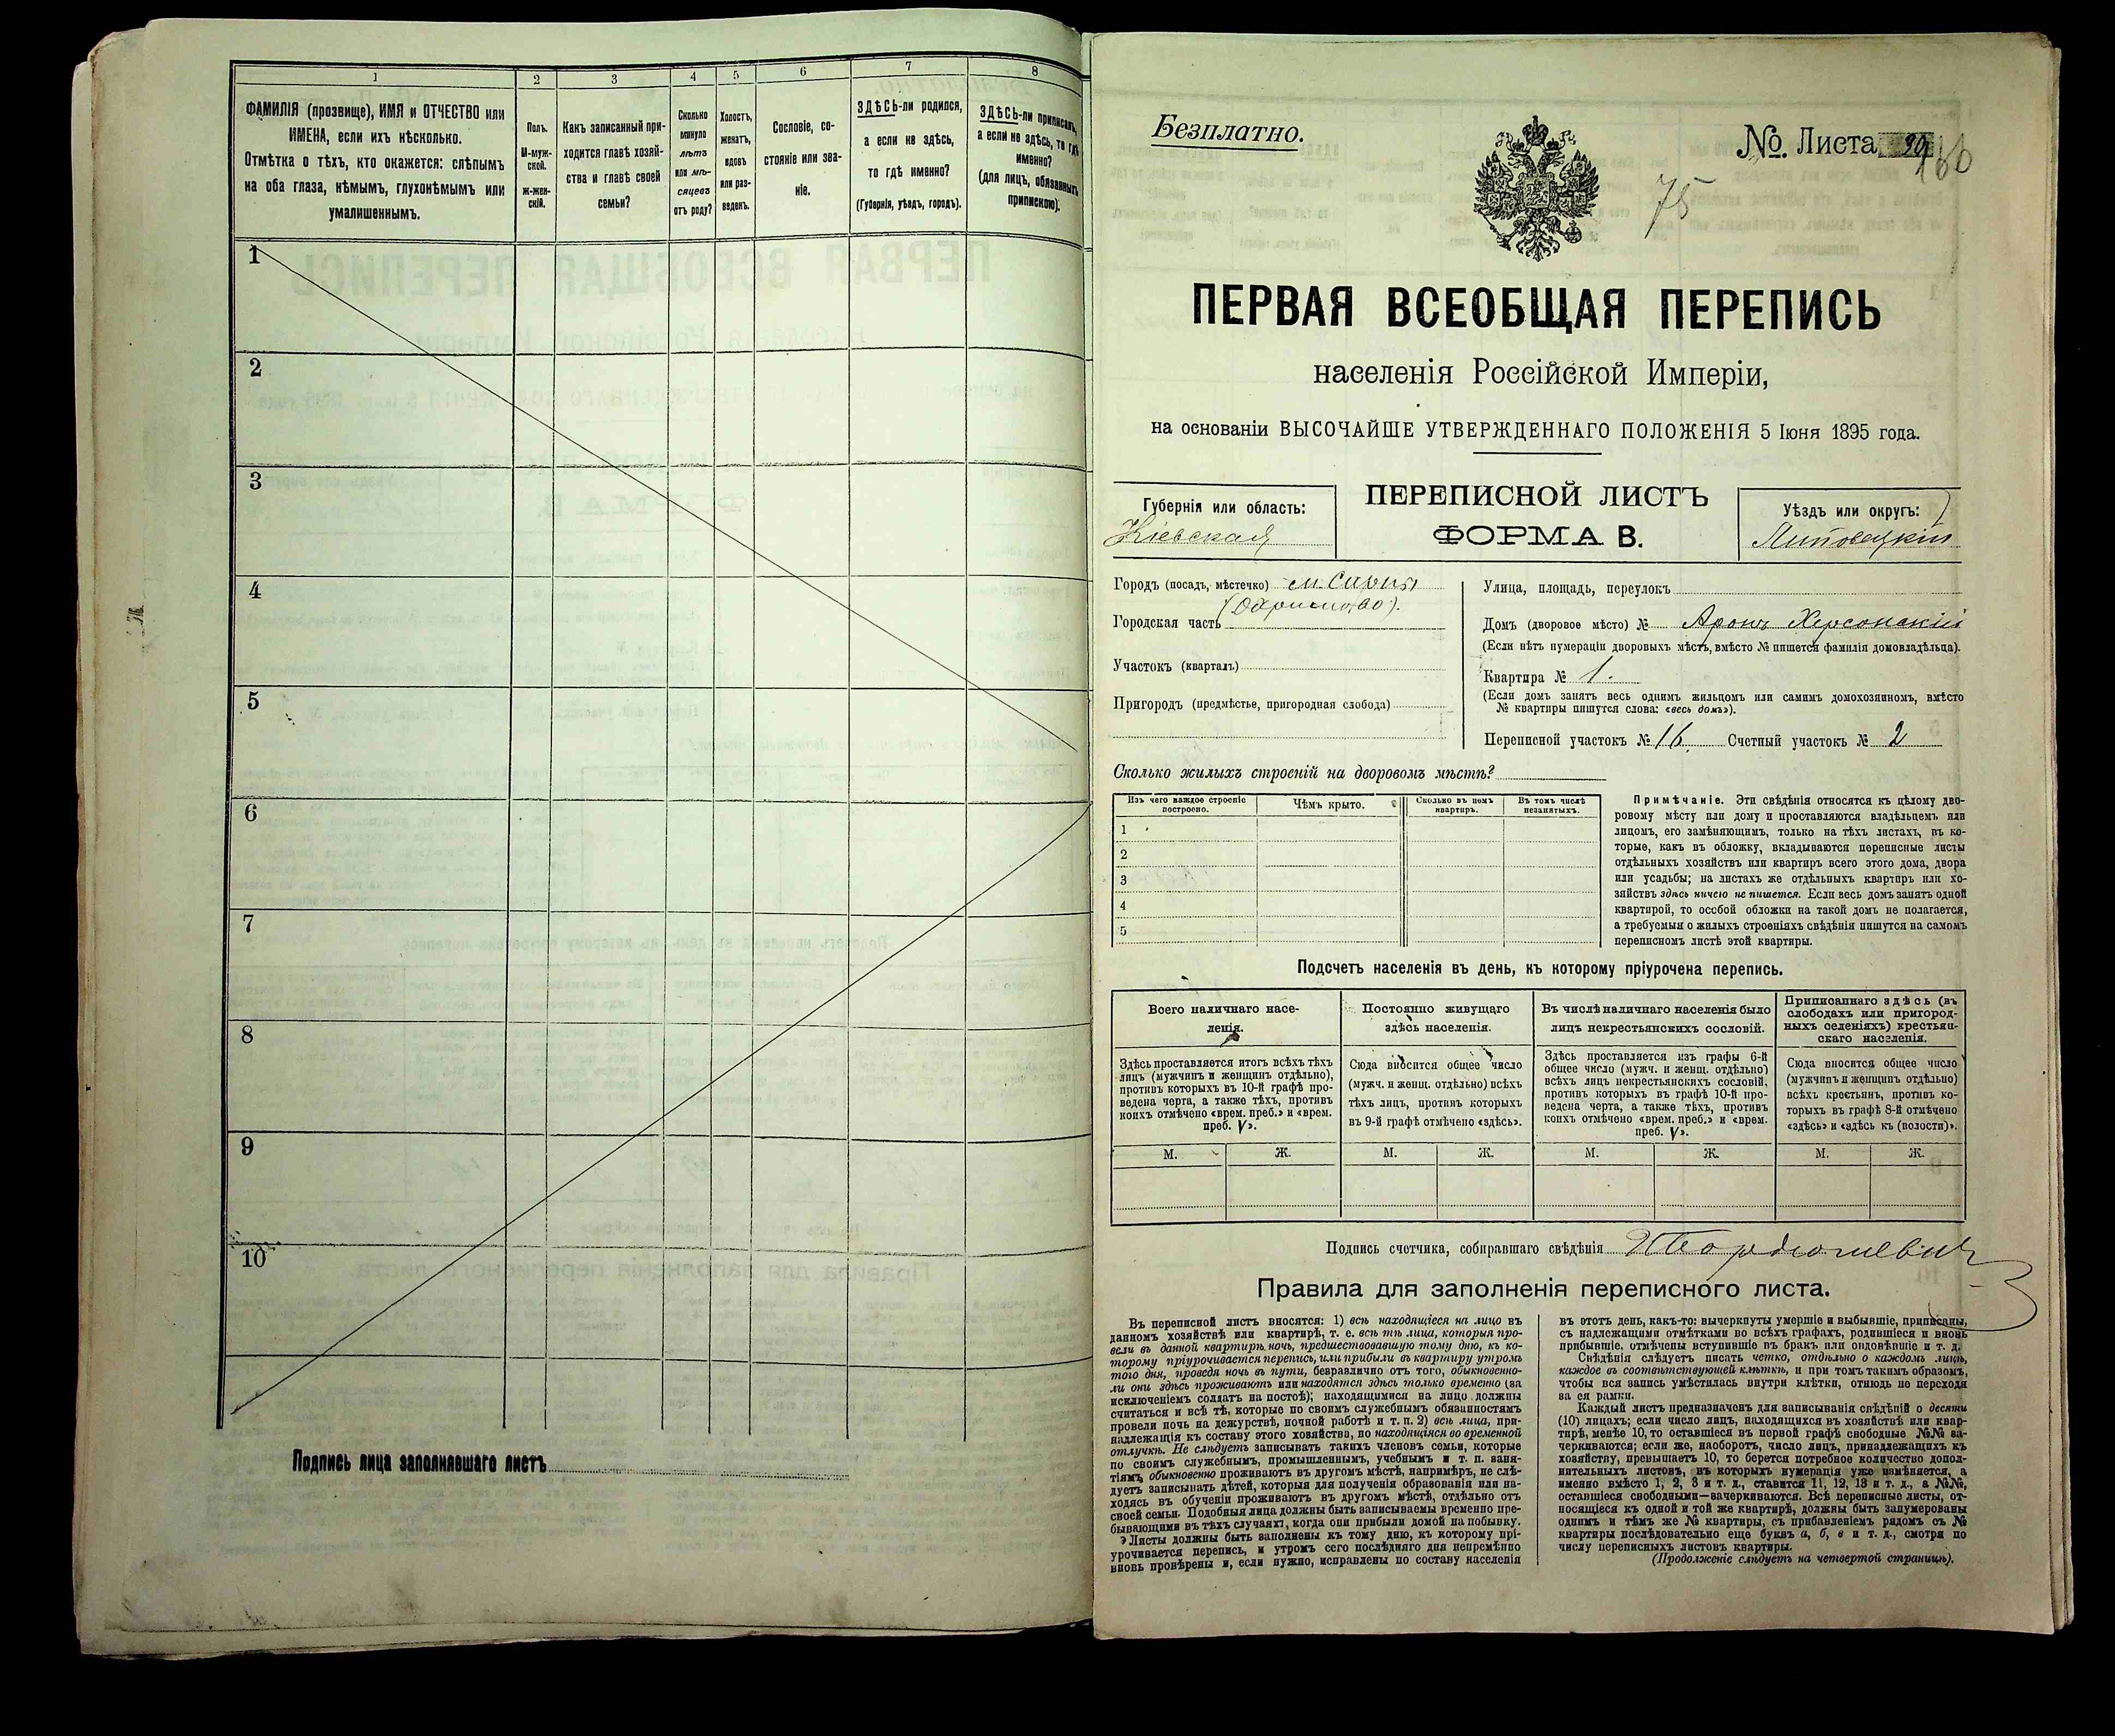 1 2 3 4 5 6 7 8
ФАМИЛІЯ (прозвище), ИМЯ и ОТЧЕСТВО или
ИМЕНА, если ихъ нѣсколько.
Отмѣтка о тѣхъ, кто окажется: слѣпымъ
на оба глаза, нѣмымъ, глухонѣмымъ или
умалишеннымъ.
Полъ.
М-муж-
ской.
ж-жен-
скій.
Какъ записанный при-
ходится главѣ хозяй-
ства и главѣ своей
семьи?
Сколько
минуло
лѣтъ
или мѣ-
сяцевъ
отъ роду?
Холостъ,
женатъ,
вдовъ
или раз-
веденъ.
Сословіе, со-
стояніе или зва-
ніе.
ЗДѢСЬ-ли родился,
а если не здѣсь,
то гдѣ именно?
(Губернія, уѣздъ, городъ).
ЗДѢСЬ-ли приписанъ,
а если не здѣсь, то гдѣ
именно?
(для лицъ, обязанныхъ
припискою).
1
2
3
4
5
6
7
8
9
10
Подпись лица заполнявшаго листъ
Безплатно.
№ Листа
75
ПЕРВАЯ ВСЕОБЩАЯ ПЕРЕПИСЬ
населенія Россійской Имперіи,
на основаніи ВЫСОЧАЙШЕ УТВЕРЖДЕННАГО ПОЛОЖЕНІЯ 5 Іюня 1895 года.
Губернія или область:
Кіевская
ПЕРЕПИСНОЙ ЛИСТЪ
ФОРМА В.
Уѣздъ или округъ:
Липовецкій
Городъ (посадъ, мѣстечко)
Городская часть
Участокъ (кварталъ)
Пригородъ (предмѣстье, пригородная слобода)
Улица, площадь, переулокъ
Домъ (дворовое мѣсто) № Аронъ Херсонскій
(Если нѣтъ нумераціи дворовыхъ мѣстъ, вмѣсто № пишется фамилія домовладѣльца).
Квартира № 1.
(Если домъ занятъ весь однимъ жильцомъ или самимъ домохозяиномъ, вмѣсто
№ квартиры пишутся слова: «весь домъ»).
Переписной участокъ № 16. Счетный участокъ № 2
Сколько жилыхъ строеній на дворовомъ мѣстѣ?
Изъ чего каждое строеніе
построено.
Чѣмъ крыто.
Сколько въ немъ
квартиръ.
Въ томъ числѣ
незанятыхъ.
1
2
3
4
5
Примѣчаніе. Эти свѣдѣнія относятся къ цѣлому дво-
ровому мѣсту или дому и проставляются владѣльцемъ или
лицомъ, его замѣняющимъ, только на тѣхъ листахъ, въ ко-
торые, какъ въ обложку, вкладываются переписные листы
отдѣльныхъ хозяйствъ или квартиръ всего этого дома, двора
или усадьбы; на листахъ же отдѣльныхъ квартиръ или хо-
зяйствъ здѣсь ничего не пишется. Если весь домъ занятъ одной
квартирой, то особой обложки на такой домъ не полагается,
а требуемыя о жилыхъ строеніяхъ свѣдѣнія пишутся на самомъ
переписномъ листѣ этой квартиры.
Подсчетъ населенія въ день, къ которому пріурочена перепись.
Всего наличнаго насе-
ленія.
Здѣсь проставляется итогъ всѣхъ тѣхъ
лицъ (мужчинъ и женщинъ отдѣльно),
противъ которыхъ въ 10-й графѣ про-
ведена черта, а также тѣхъ, противъ
коихъ отмѣчено «врем. преб.» и «врем.
преб. V».
Постоянно живущаго
здѣсь населенія.
Сюда вносится общее число
(мужч. и женщ. отдѣльно) всѣхъ
тѣхъ лицъ, противъ которыхъ
въ 9-й графѣ отмѣчено «здѣсь».
Въ числѣ наличнаго населенія было
лицъ некрестьянскихъ сословій.
Здѣсь проставляется изъ графы 6-й
общее число (мужч. и женщ. отдѣльно)
всѣхъ лицъ некрестьянскихъ сословій,
противъ которыхъ въ графѣ 10-й про-
ведена черта, а также тѣхъ, противъ
коихъ отмѣчено «врем. преб.» и «врем.
преб. V».
Приписаннаго здѣсь (въ
слободахъ или пригород-
ныхъ селеніяхъ) крестьян-
скаго населенія.
Сюда вносится общее число
(мужчинъ и женщинъ отдѣльно)
всѣхъ крестьянъ, противъ ко-
торыхъ въ графѣ 8-й отмѣчено
«здѣсь» и «здѣсь къ (волости)».
М. Ж. М. Ж. М. Ж. М. Ж.
Подпись счетчика, собиравшаго свѣдѣнія
Правила для заполненія переписного листа.
Въ переписной листъ вносятся: 1) всѣ находящіеся на лицо въ
данномъ хозяйствѣ или квартирѣ, т. е. всѣ тѣ лица, которыя про-
вели въ данной квартирѣ ночь, предшествовавшую тому дню, къ ко-
торому пріурочивается перепись, или прибыли въ квартиру утромъ
того дня, проведя ночь въ пути, безразлично отъ того, обыкновенно-
ли они здѣсь проживаютъ или находятся здѣсь только временно (за
исключеніемъ солдатъ на постоѣ); находящимися на лицо должны
считаться и всѣ тѣ, которые по своимъ служебнымъ обязанностямъ
провели ночь на дежурствѣ, ночной работѣ и т. п. 2) всѣ лица, при-
надлежащія къ составу этого хозяйства, но находящіяся во временной
отлучкѣ. Не слѣдуетъ записывать такихъ членовъ семьи, которые
по своимъ служебнымъ, промышленнымъ, учебнымъ и т. п. заня-
тіямъ обыкновенно проживаютъ въ другомъ мѣстѣ, напримѣръ, не слѣ-
дуетъ записывать дѣтей, которыя для полученія образованія или на-
ходясь въ обученіи проживаютъ въ другомъ мѣстѣ, отдѣльно отъ
своей семьи. Подобныя лица должны быть записываемы временно пре-
бывающими въ тѣхъ случаяхъ, когда они прибыли домой на побывку.
Листы должны быть заполнены къ тому дню, къ которому прі-
урочивается перепись, и утромъ сего послѣдняго дня непремѣнно
вновь провѣрены и, если нужно, исправлены по составу населенія
въ этотъ день, какъ-то: вычеркнуты умершіе и выбывшіе, приписаны,
съ надлежащими отмѣтками во всѣхъ графахъ, родившіеся и вновь
прибывшіе, отмѣчены вступившіе въ бракъ или овдовѣвшіе и т. д.
Свѣдѣнія слѣдуетъ писать четко, отдѣльно о каждомъ лицѣ,
каждое въ соотвѣтствующей клѣткѣ, и при томъ такимъ образомъ,
чтобы вся запись умѣстилась внутри клѣтки, отнюдь не переходя
за ея рамки.
Каждый листъ предназначенъ для записыванія свѣдѣній о десяти
(10) лицахъ; если число лицъ, находящихся въ хозяйствѣ или квар-
тирѣ, менѣе 10, то оставшіеся въ первой графѣ свободные №№ за-
черкиваются; если же, наоборотъ, число лицъ, принадлежащихъ къ
хозяйству, превышаетъ 10, то берется потребное количество допол-
нительныхъ листовъ, въ которыхъ нумерація уже измѣняется, а
именно вмѣсто 1, 2, 3 и т. д., ставится 11, 12, 13 и т. д., а №№,
оставшіеся свободными—зачеркиваются. Всѣ переписные листы, от-
носящіеся къ одной и той же квартирѣ, должны быть занумерованы
однимъ и тѣмъ же № квартиры, съ прибавленіемъ рядомъ съ №
квартиры послѣдовательно еще буквъ а, б, в и т. д., смотря по
числу переписныхъ листовъ квартиры.
(Продолженіе слѣдуетъ на четвертой страницѣ).